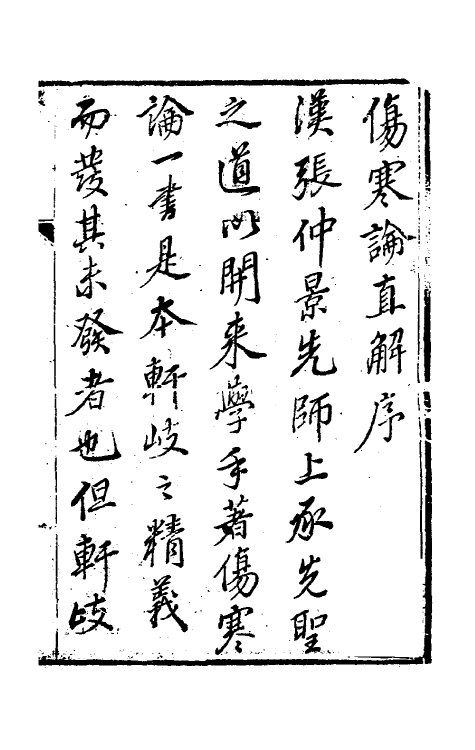 傷寒論直解序
漢張仲景先師上承先聖
之道以開来學手著傷寒
論一書是本軒岐之精義
而發其未發者也但軒岐